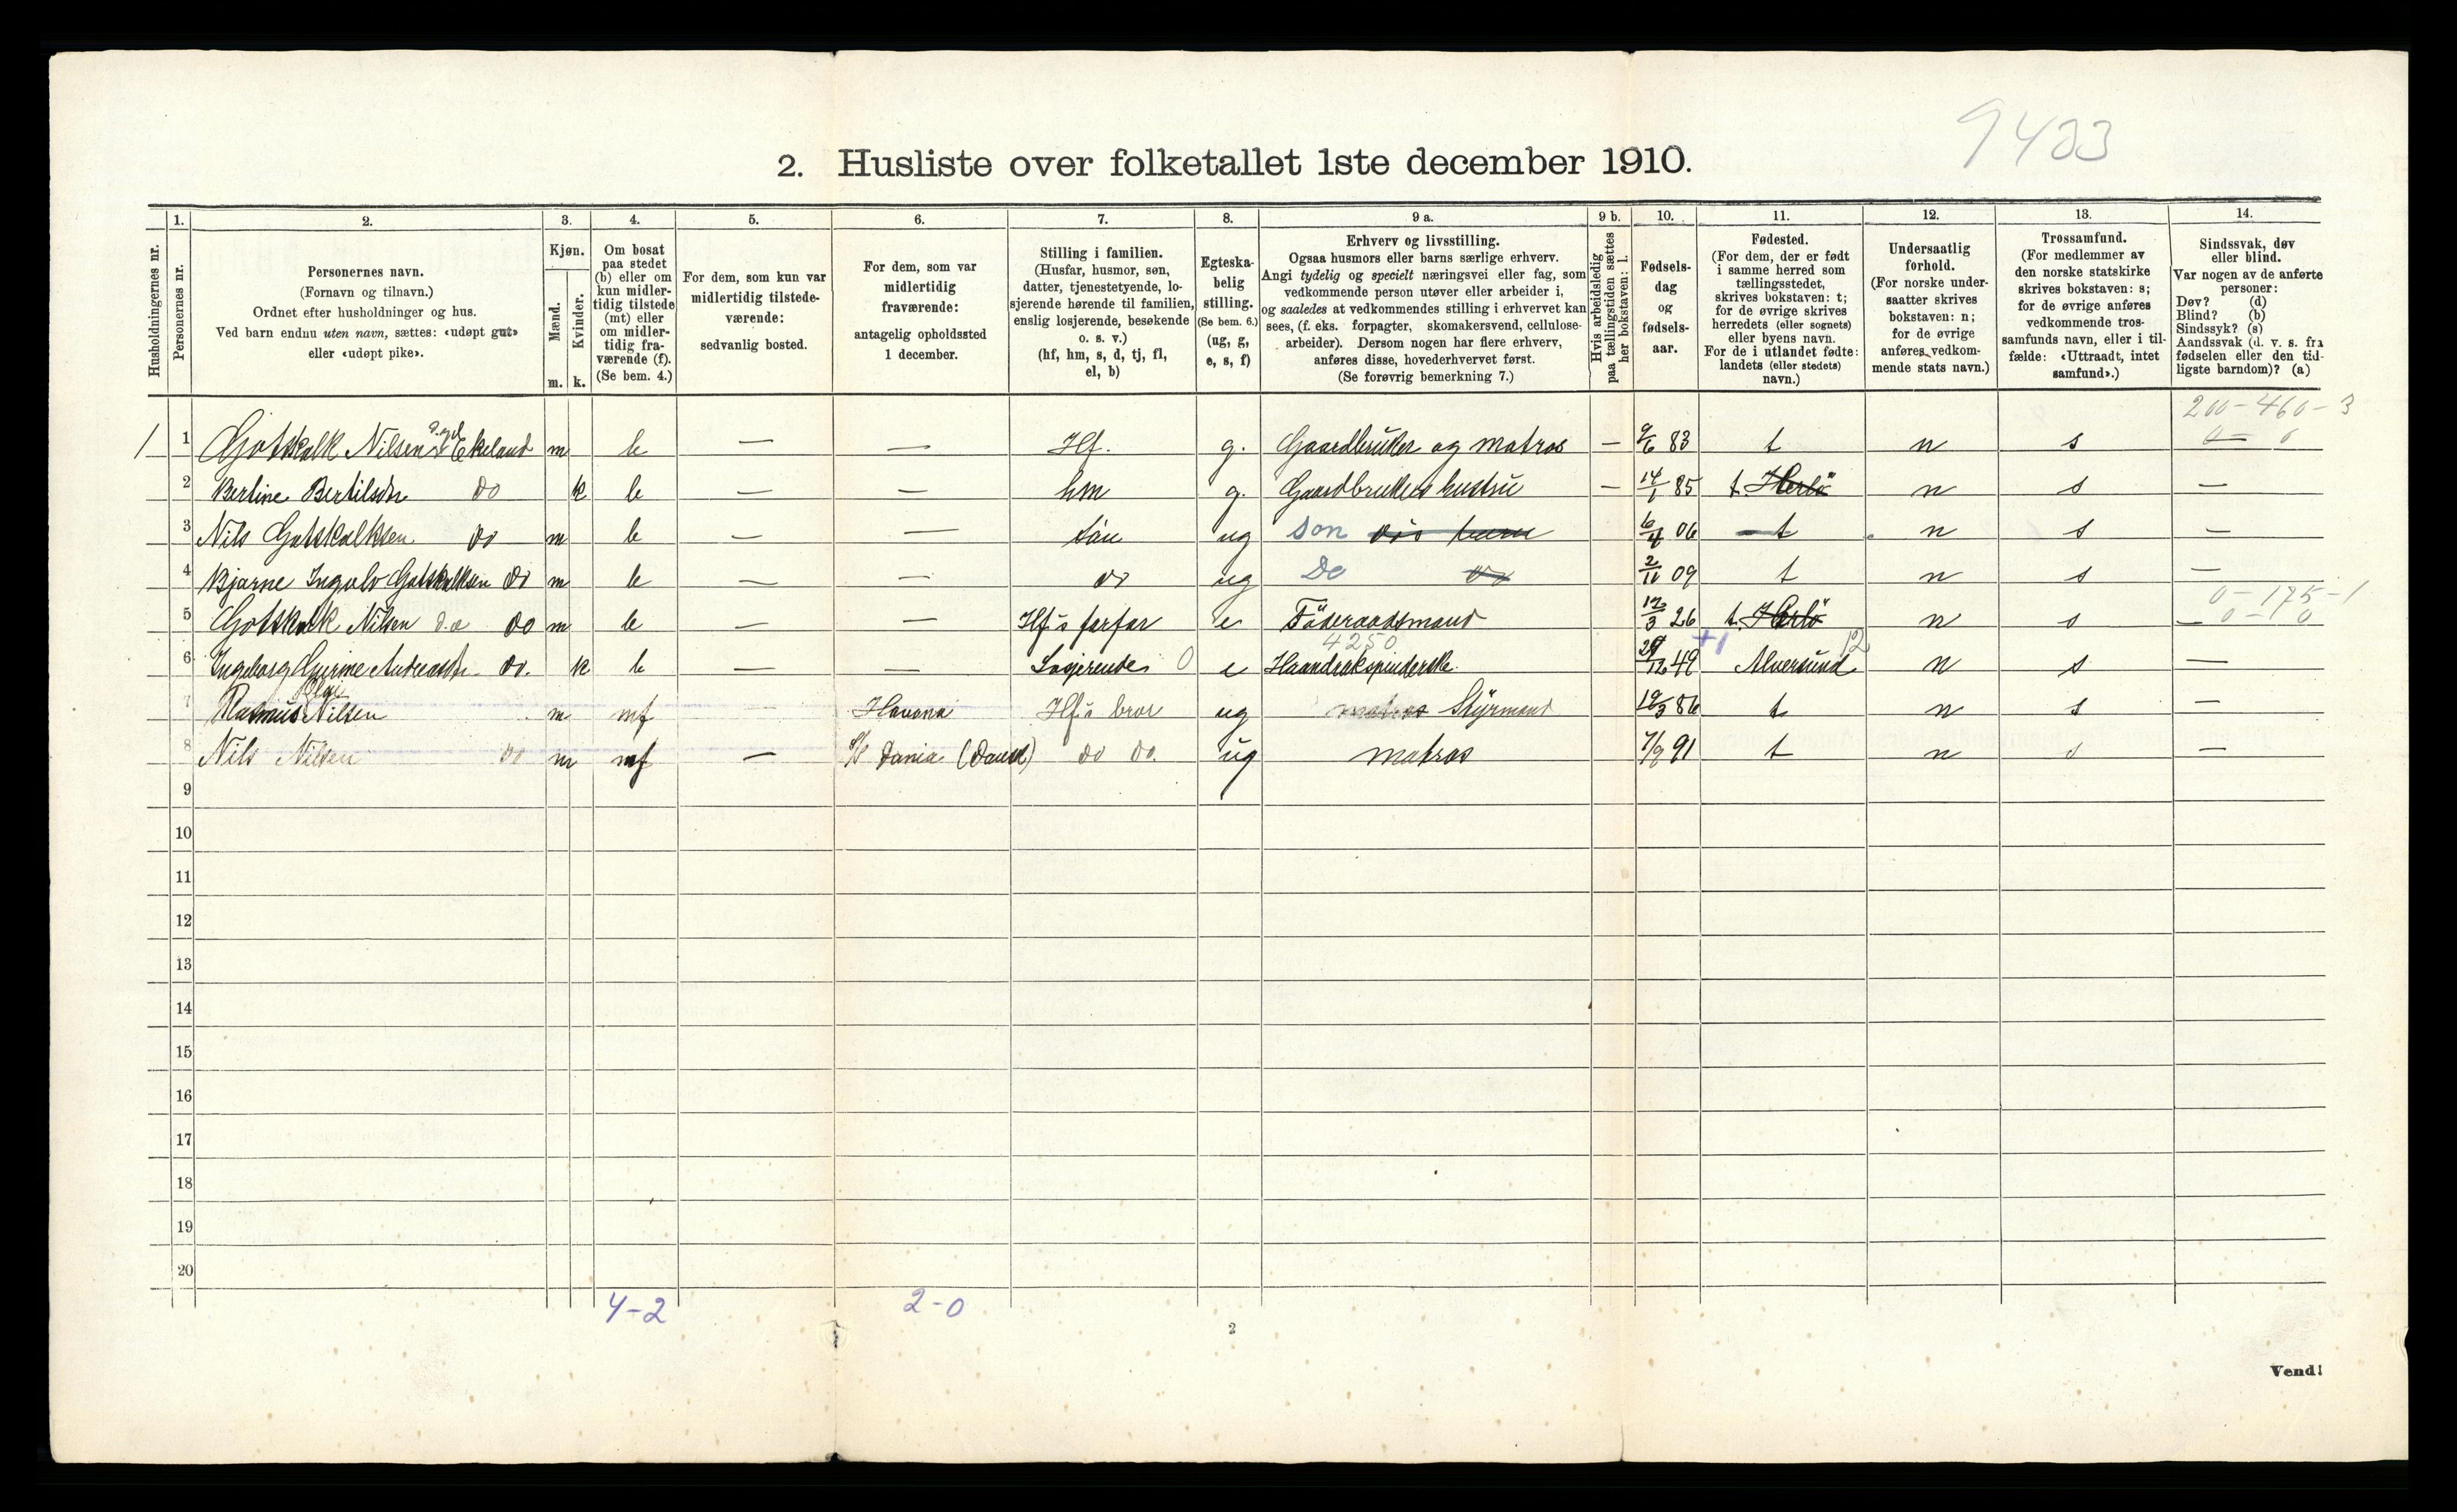 9483
2. Husliste over folketallet 1ste december 1910.
Husholdningernes nr.
1. Personernes nr.
2. Personernes navn.
(Fornavn og tilnavn.)
Ordnet efter husholdninger og hus.
Ved barn endnu uten navn, sættes: «udøpt gut»
eller «udøpt pike».
3. Kjøn.
Mænd. Kvinder.
m. k.
4. Om bosat
paa stedet
(b) eller om
kun midler-
tidig tilstede
(mt) eller
om midler-
tidig fra-
værende (f).
(Se bem. 4.)
5. For dem, som kun var
midlertidig tilstede-
værende:
sedvanlig bosted.
6. For dem, som var
midlertidig
fraværende:
antagelig opholdssted
1 december.
7. Stilling i familien.
(Husfar, husmor, søn,
datter, tjenestetyende, lo-
sjerende hørende til familien,
enslig losjerende, besøkende
o. s. v.)
(hf, hm, s, d, tj, fl,
el, b)
8. Egteska-
belig
stilling.
(Se bem. 6.)
(ug, g,
e, s, f)
9 a. Erhverv og livsstilling.
Ogsaa husmors eller barns særlige erhverv.
Angi tydelig og specielt næringsvei eller fag, som
vedkommende person utøver eller arbeider i,
og saaledes at vedkommendes stilling i erhvervet kan
sees, (f. eks. forpagter, skomakersvend, cellulose-
arbeider). Dersom nogen har flere erhverv,
anføres disse, hovederhvervet først.
(Se forøvrig bemerkning 7.)
9 b. Hvis arbeidsledig
paa tællingstiden sættes
her bokstaven: l.
10. Fødsels-
dag
og
fødsels-
aar.
11. Fødested.
(For dem, der er født
i samme herred som
tællingsstedet,
skrives bokstaven: t;
for de øvrige skrives
herredets (eller sognets)
eller byens navn.
For de i utlandet fødte:
landets (eller stedets)
navn.)
12. Undersaatlig
forhold.
(For norske under-
saatter skrives
bokstaven: n;
for de øvrige
anføres vedkom-
mende stats navn.)
13. Trossamfund.
(For medlemmer av
den norske statskirke
skrives bokstaven: s;
for de øvrige anføres
vedkommende tros-
samfunds navn, eller i til-
fælde: «Uttraadt, intet
samfund».)
14. Sindssvak, døv
eller blind.
Var nogen av de anførte
personer:
Døv? (d)
Blind? (b)
Sindssyk? (s)
Aandssvak (d. v. s. fra
fødselen eller den tid-
ligste barndom)? (a)
200 - 460 - 3
1 1 Gotskalk Nilsen Ekeland m b — — Hf. g. Gaardbruker og matros — 9/6 83 t n s 0 — 0
2 Bertine Bertilsdtr do k b — — hm g. Gaardbrukers hustru — 14/1 85 t Herlö n s —
3 Nils Gotskalksen do m b — — sön ug son 6/4 06 t n s —
4 Bjarne Ingolv Gotskalksen do m b — — do ug Do do 2/11 09 t n s —
0 - 175 - 1
5 Gotskalk Nilsen d.æ do m b — — Hf's farfar e Föderaadsmand 12/3 26 t. Herlö n s — 0 - 0
4250 +1 12
6 Ingeborg Gurine Andreasdtr do. k b — — Losjerende 0 e Haandrokspinderske 29/12 49 Alversund n s —
7 Rasmus Nilsen m mf Havana Hf's bror ug matros Styrmand 12/3 86 t n s —
8 Nils Nilsen do m mf — S/S Dania (Dansk) do do. ug matros 7/8 91 t n s —
9
10
11
12
13
14
15
16
17
18
19
20
4-2 2-0
2
Vend!